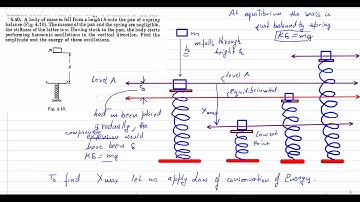 4.40. A body of mass m fell from a height h onto the pan of a spring
balance (Fig. 4.10). The masses of the pan and the spring are negligible,
the stiffness of the latter is ϰ. Having stuck to the pan, the body starts
performing harmonic oscillations in the vertical direction. Find the
amplitude and the energy of these oscillations.
Fig. 4.10.
At equilibrium the mass is
just balanced by spring
Kδ = mg
m
m falls through
height h
h
Level A
level A
δ
Equilibrium
had m been placed
gradually, the
compression would
have been δ
Kδ = mg
Xmax
Lowest
Point
To find Xmax let us apply Law of conservation of Energy.